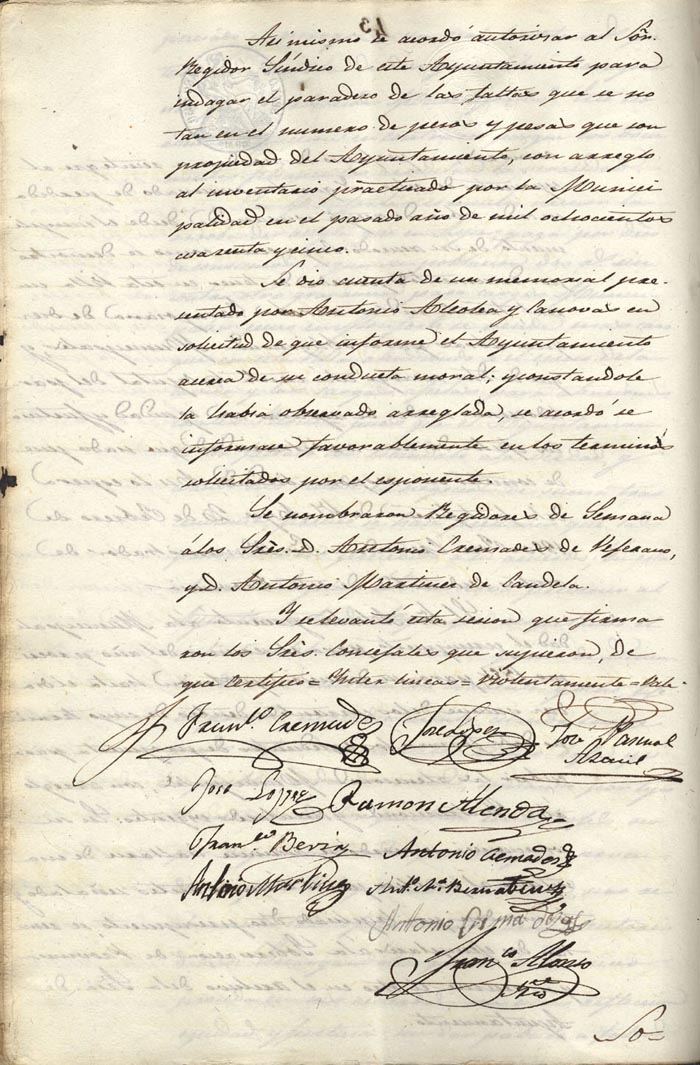 13
Asi mismo se acordó autorizar al Sõr.
Regidor Síndico de este Ayuntamiento para
indagar el paradero de las faltas que se no
tan en el numero de pesos y pesas que son
propiedad del Ayuntamiento, con arreglo
al inventario practicado por la Munici
palidad en el pasado año de mil ochocientos
cuarenta y cinco.
Se dio cuenta de un memorial pre-
sentado por Antonio Alcolea y Canovas en
solicitud de que informe el Ayuntamiento
acerca de su conducta moral; y constandole
la habia observado arreglada, se acordó se
informase favorablemente en los terminos
solicitados por el esponente.
Se nombraron Regidores de Semana
á los Srẽs. D. Antonio Cremades de
y D. Antonio Martinez de Candela.
Y se levantó esta sesion que firma
ron los Srẽs. Concejales que supieron, de
que certifico = Entre lineas = = Vale.
Fran.co Cremades José Lopez José Pascual
José Lopez Ramon Alenda
Fran.co Antonio Cremades
Antonio Martinez Ant.o M.a Bernabeu
Antonio
Fran.co Alonso
Srio
So-